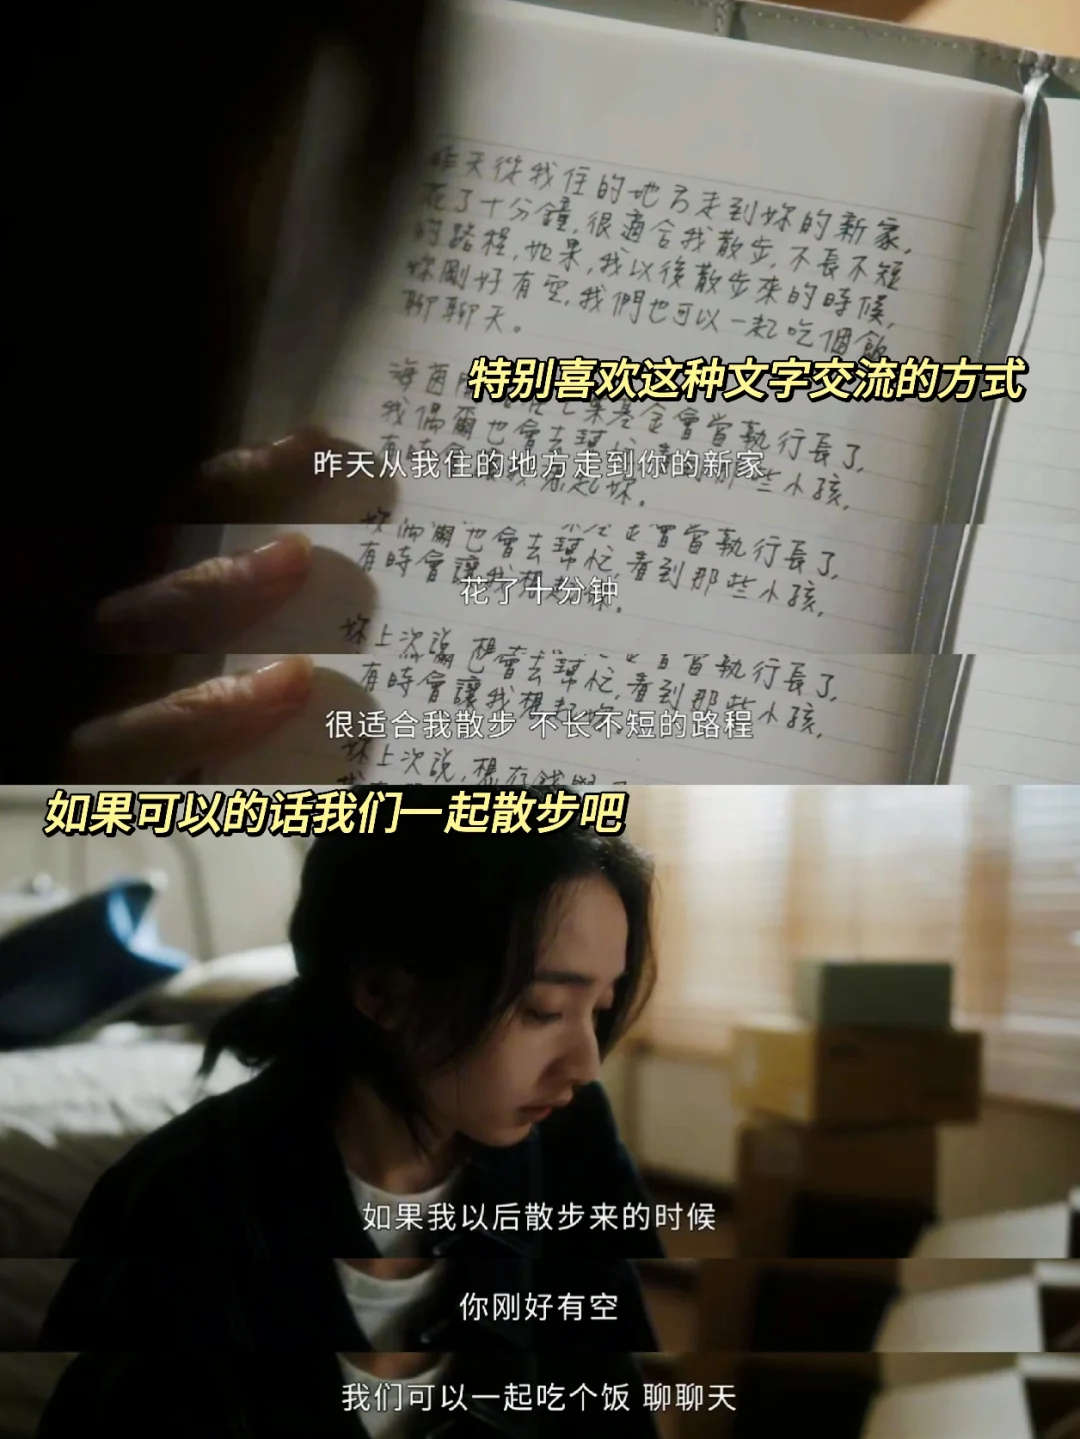 昨天從我住的地方走到妳的新家,
花了十分鐘,很適合我散步,不長不短
的路程,如果,我以後散步來的時候,
妳剛好有空,我們也可以一起吃個飯
聊聊天。
特别喜欢这种文字交流的方式
基金會當執行長了,
我偶爾也會去幫忙
昨天从我住的地方走到你的新家
也會去幫忙
當執行長了,
有時會讓我
看到那些小孩,
花了十分钟
妳上次說,想
也會去幫忙,
執行長了,
有時會讓我想起妳
看到那些小孩,
很适合我散步 不长不短的路程
妳上次說,想存錢
如果可以的话我们一起散步吧
如果我以后散步来的时候
你刚好有空
我们可以一起吃个饭 聊聊天